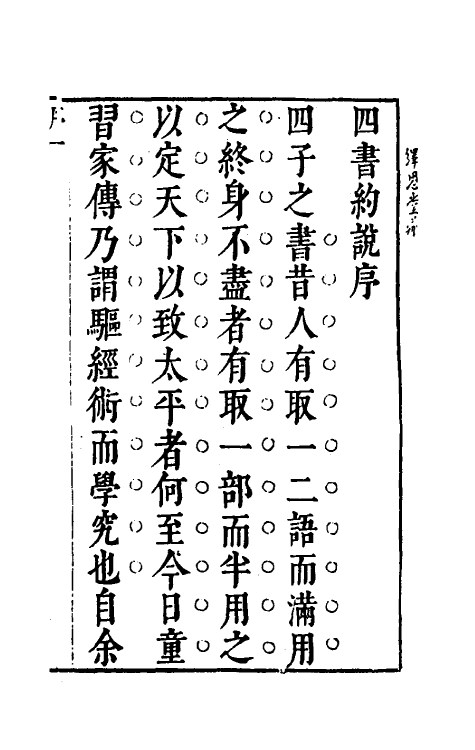 四書約說序
四子之書昔人有取一二語而滿用
之終身不盡者有取一部而半用之
以定天下以致太平者何至今日童
習家傳乃謂驅經術而學究也自余
序一